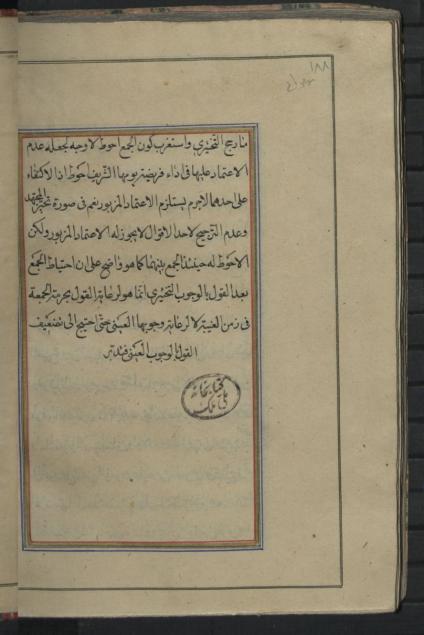 ١٨٨
منا رجح التخيرى واستغرب كون الجمع احوط لا وجه لجعله عدم
الاعتماد عليها فى اداء فريضة يومها الشريف احوط اذ الاكتفاء
على احدهما لاجرم يستلزم الاعتماد المزبور نعم فى صورة تحير المجتهد
وعدم الترجيح لاحد الاقوال لا يجوز له الاعتماد المزبور ولكن
الاحوط له حينئذ الجمع بينهما كما هو واضح على ان احتياط الجمع
بعد القول بالوجوب التخيرى انما هو لرعاية القول بحرمة الجمعة
فى زمن الغيبة لا لرعاية وجوبها العينى حتى احتيج الى تضعيف
القول بالوجوب العينى فتدبر
كتابخانه
ملى ملك